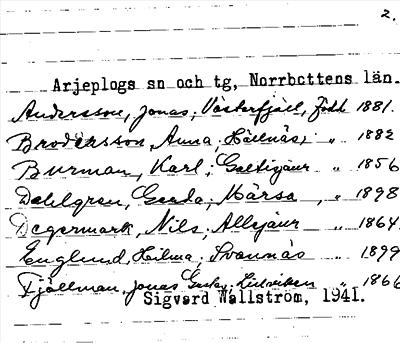 2.
Arjeplogs sn och tg, Norrbottens län.
Andersson, Jonas, Västerfjäll, född 1881.
Brodersson, Anna, Hällnäs, " 1882
Burman, Karl, Galtisjaur " 1856
Dahlgren, Gerda, Märsa, " 1898
Degermark, Nils, Allejaur " 1864
Englund, Hilma, Svannäs " 1899
Fjällman, Jonas " 1866
Sigvard Wallström, 1941.